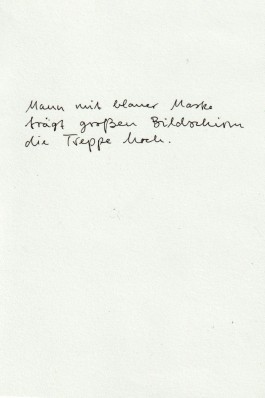 Mann mit blauer Maske
trägt großen Bildschirm
die Treppe hoch.